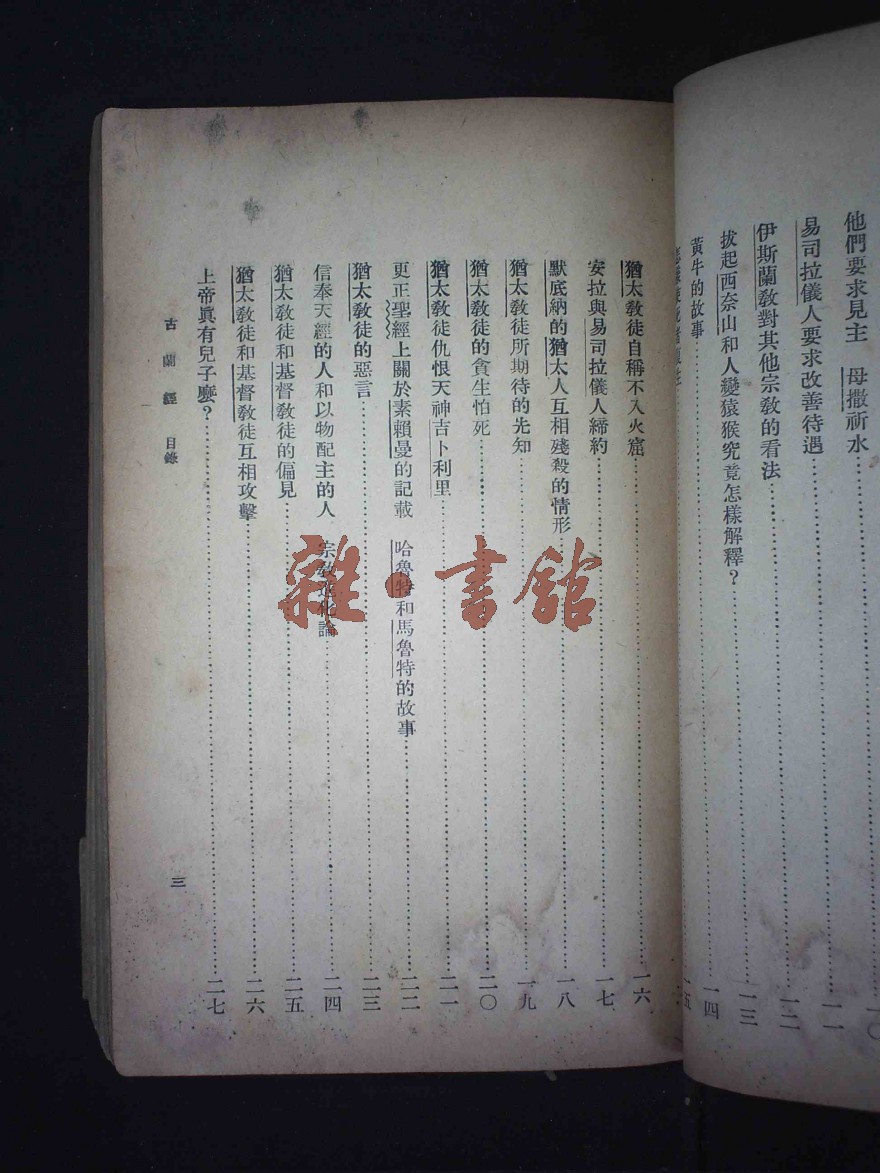 他們要求見主　母撒祈水……一〇
易司拉儀人要求改善待遇……一一
伊斯蘭敎對其他宗敎的看法……一二
拔起西奈山和人變猿猴究竟怎樣解釋？……一三
黃牛的故事……一四
一五
猶太敎徒自稱不入火窟……一六
安拉與易司拉儀人締約……一七
默底納的猶太人互相殘殺的情形……一八
猶太敎徒所期待的先知……一九
猶太敎徒的貪生怕死……二〇
猶太敎徒仇恨天神吉卜利里……二一
更正聖經上關於素賴曼的記載　哈魯特和馬魯特的故事……二二
猶太敎徒的惡言……二三
信奉天經的人和以物配主的人　宗敎進化論……二四
猶太敎徒和基督敎徒的偏見……二五
猶太敎徒和基督敎徒互相攻擊……二六
上帝眞有兒子麽？……二七
古蘭經　目錄
三
雜·書館